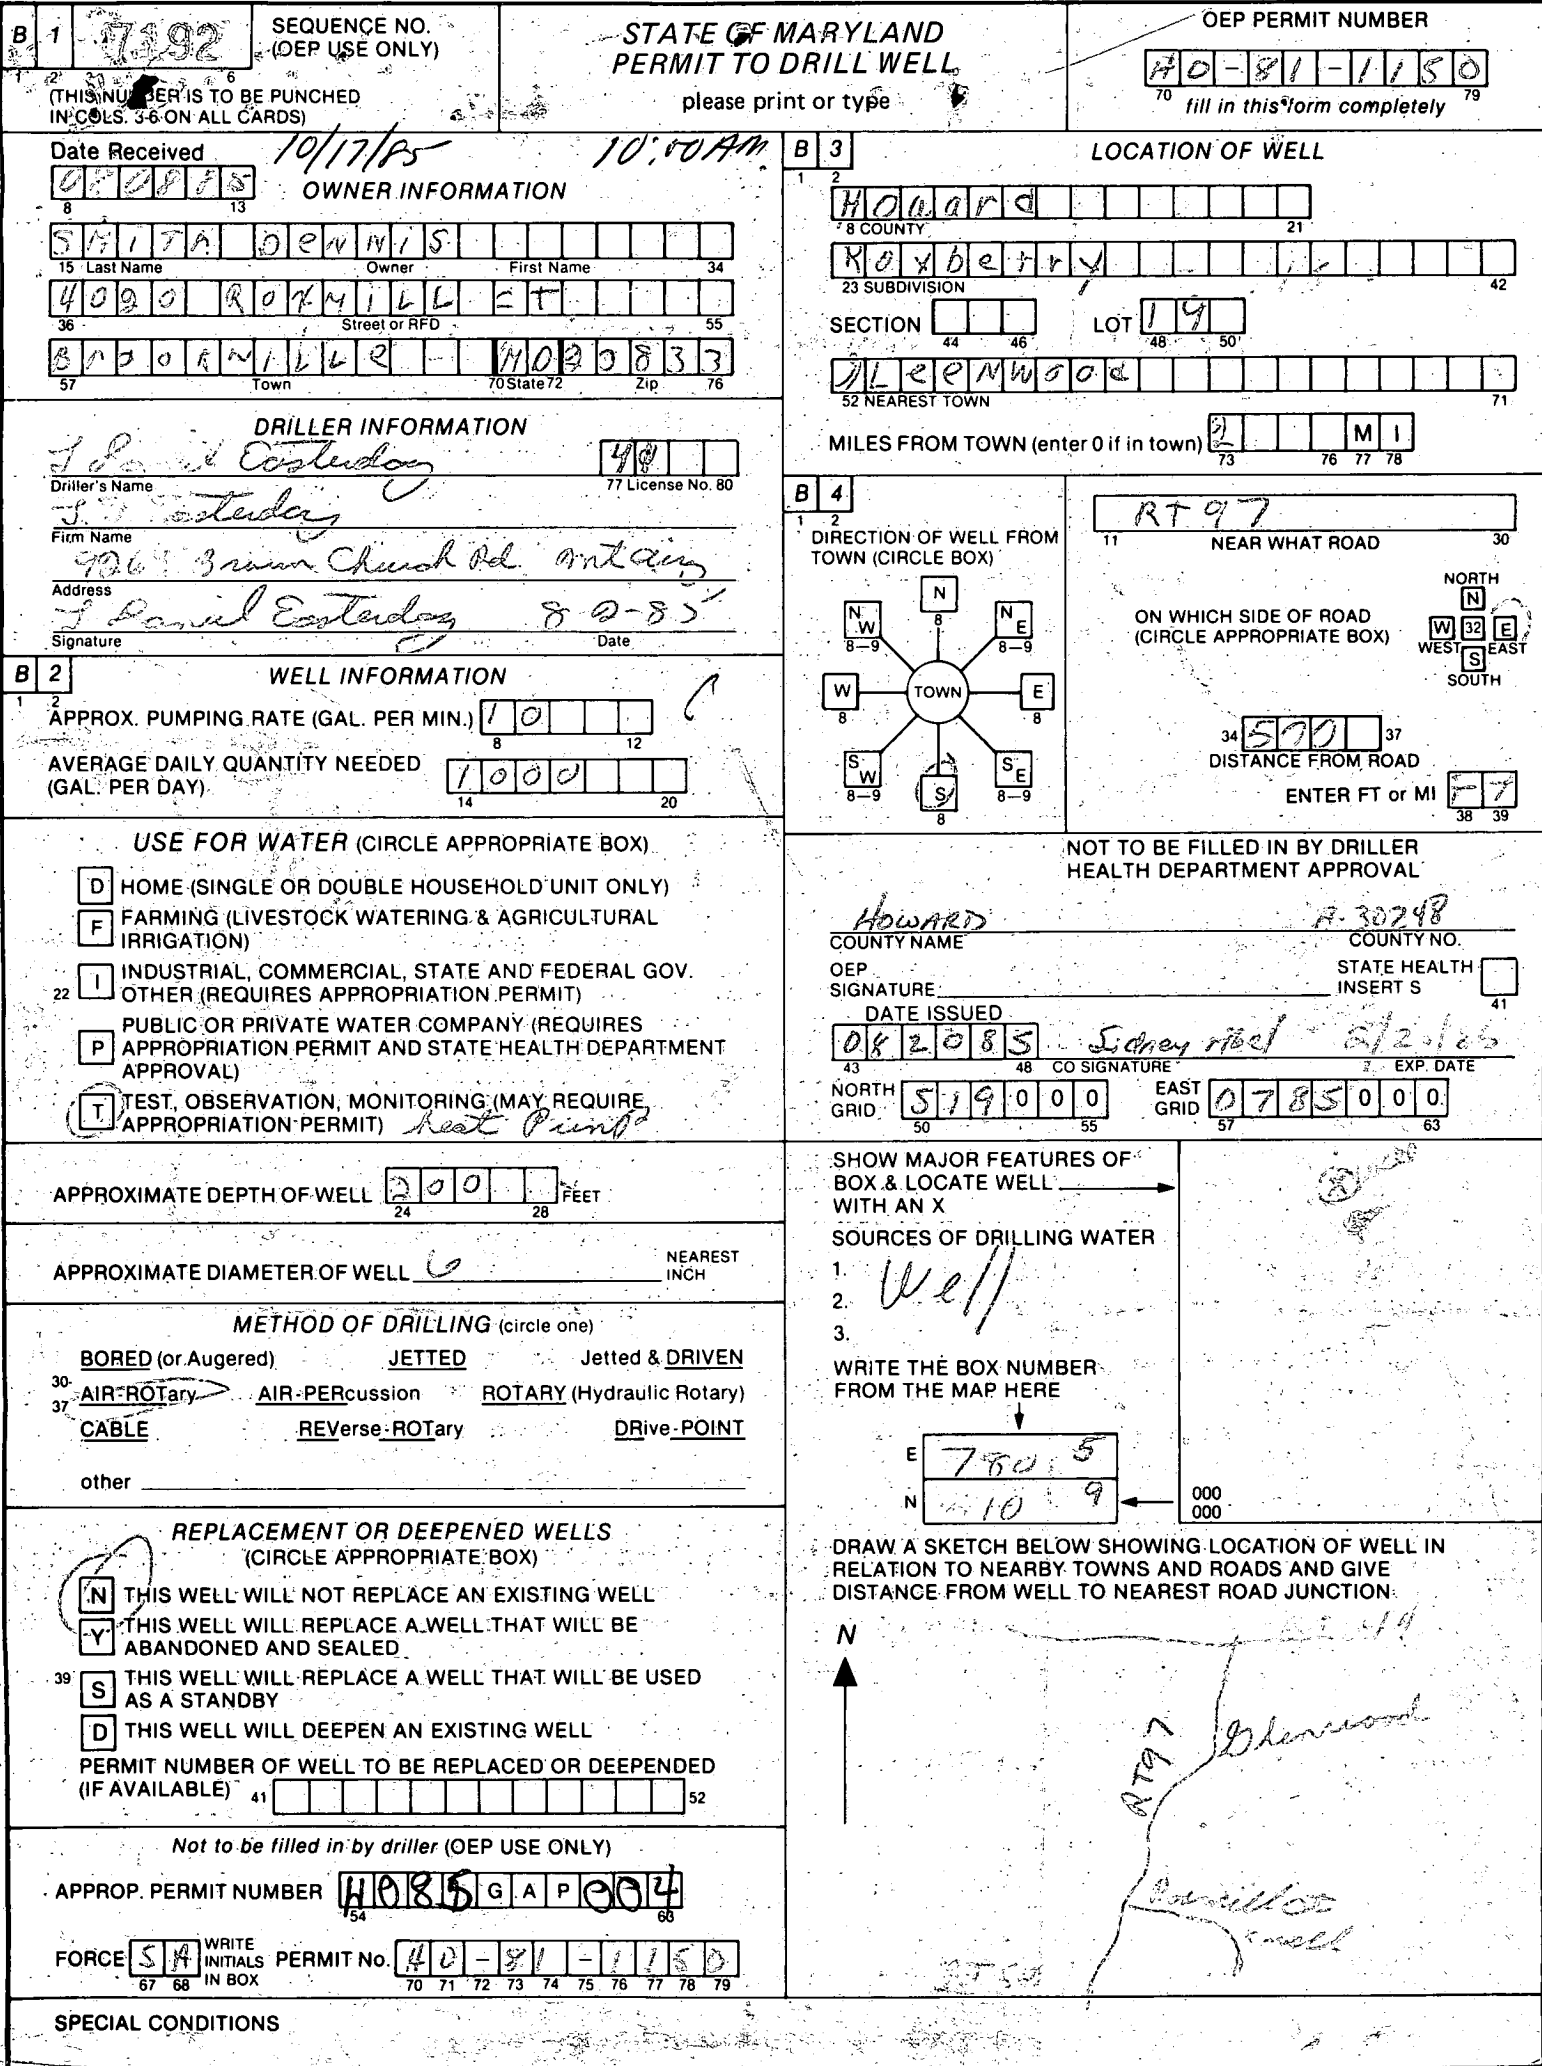 B 1 7192 SEQUENCE NO. (OEP USE ONLY)
1 2 3 6
(THIS NUMBER IS TO BE PUNCHED
IN COLS. 3-6 ON ALL CARDS)
STATE OF MARYLAND
PERMIT TO DRILL WELL
please print or type
OEP PERMIT NUMBER
HO-81-1150
70 fill in this form completely 79
Date Received 10/17/85 10:00 AM
080885
8 13
OWNER INFORMATION
SMITH DENNIS
15 Last Name Owner First Name 34
4020 ROXMILL CT
36 Street or RFD 55
Brookville MD20833
57 Town 70 State 72 Zip 76
DRILLER INFORMATION
L Daniel Easterday
Driller's Name 77 License No. 80
Easterday
Firm Name
Brown Church Rd. Mt Airy
Address
L Daniel Easterday 8-2-85
Signature Date
B 2 WELL INFORMATION
1 2
APPROX. PUMPING RATE (GAL. PER MIN.) 10
8 12
AVERAGE DAILY QUANTITY NEEDED
(GAL. PER DAY) 1000
14 20
USE FOR WATER (CIRCLE APPROPRIATE BOX)
D HOME (SINGLE OR DOUBLE HOUSEHOLD UNIT ONLY)
F FARMING (LIVESTOCK WATERING & AGRICULTURAL
IRRIGATION)
22 I INDUSTRIAL, COMMERCIAL, STATE AND FEDERAL GOV.
OTHER (REQUIRES APPROPRIATION PERMIT)
P PUBLIC OR PRIVATE WATER COMPANY (REQUIRES
APPROPRIATION PERMIT AND STATE HEALTH DEPARTMENT
APPROVAL)
T TEST, OBSERVATION, MONITORING (MAY REQUIRE
APPROPRIATION PERMIT) heat Pump
APPROXIMATE DEPTH OF WELL 200 FEET
24 28
APPROXIMATE DIAMETER OF WELL 6 NEAREST INCH
METHOD OF DRILLING (circle one)
BORED (or Augered) JETTED Jetted & DRIVEN
30-37 AIR-ROTary AIR-PERcussion ROTARY (Hydraulic Rotary)
CABLE REVerse-ROTary DRive-POINT
other
REPLACEMENT OR DEEPENED WELLS
(CIRCLE APPROPRIATE BOX)
N THIS WELL WILL NOT REPLACE AN EXISTING WELL
Y THIS WELL WILL REPLACE A WELL THAT WILL BE
ABANDONED AND SEALED
39 S THIS WELL WILL REPLACE A WELL THAT WILL BE USED
AS A STANDBY
D THIS WELL WILL DEEPEN AN EXISTING WELL
PERMIT NUMBER OF WELL TO BE REPLACED OR DEEPENDED
(IF AVAILABLE) 41 52
Not to be filled in by driller (OEP USE ONLY)
APPROP. PERMIT NUMBER HO85GAP004
54 63
FORCE SA WRITE INITIALS IN BOX PERMIT No. HO-81-1150
67 68 70 71 72 73 74 75 76 77 78 79
SPECIAL CONDITIONS
B 3 LOCATION OF WELL
1 2
Howard
8 COUNTY 21
Roxberry
23 SUBDIVISION 42
SECTION LOT 19
44 46 48 50
GLeeNwood
52 NEAREST TOWN 71
MILES FROM TOWN (enter 0 if in town) 2 MI
73 76 77 78
B 4
1 2
DIRECTION OF WELL FROM
TOWN (CIRCLE BOX)
N
8
NW NE
8-9 8-9
W TOWN E
8 8
SW S SE
8-9 8 8-9
RT 97
11 NEAR WHAT ROAD 30
ON WHICH SIDE OF ROAD
(CIRCLE APPROPRIATE BOX)
NORTH
N
W 32 E
WEST EAST
S
SOUTH
34 500 37
DISTANCE FROM ROAD
ENTER FT or MI FT
38 39
NOT TO BE FILLED IN BY DRILLER
HEALTH DEPARTMENT APPROVAL
HOWARD A-30248
COUNTY NAME COUNTY NO.
OEP
SIGNATURE
STATE HEALTH
INSERT S
41
DATE ISSUED
082085 Sidney
43 48 CO SIGNATURE EXP. DATE
NORTH GRID 519000 EAST GRID 0785000
50 55 57 63
SHOW MAJOR FEATURES OF
BOX & LOCATE WELL
WITH AN X
SOURCES OF DRILLING WATER
1.
2. Well
3.
WRITE THE BOX NUMBER
FROM THE MAP HERE
E 780 5
N 10 9
000
000
DRAW A SKETCH BELOW SHOWING LOCATION OF WELL IN
RELATION TO NEARBY TOWNS AND ROADS AND GIVE
DISTANCE FROM WELL TO NEAREST ROAD JUNCTION
N
Glenwood
RT97
well